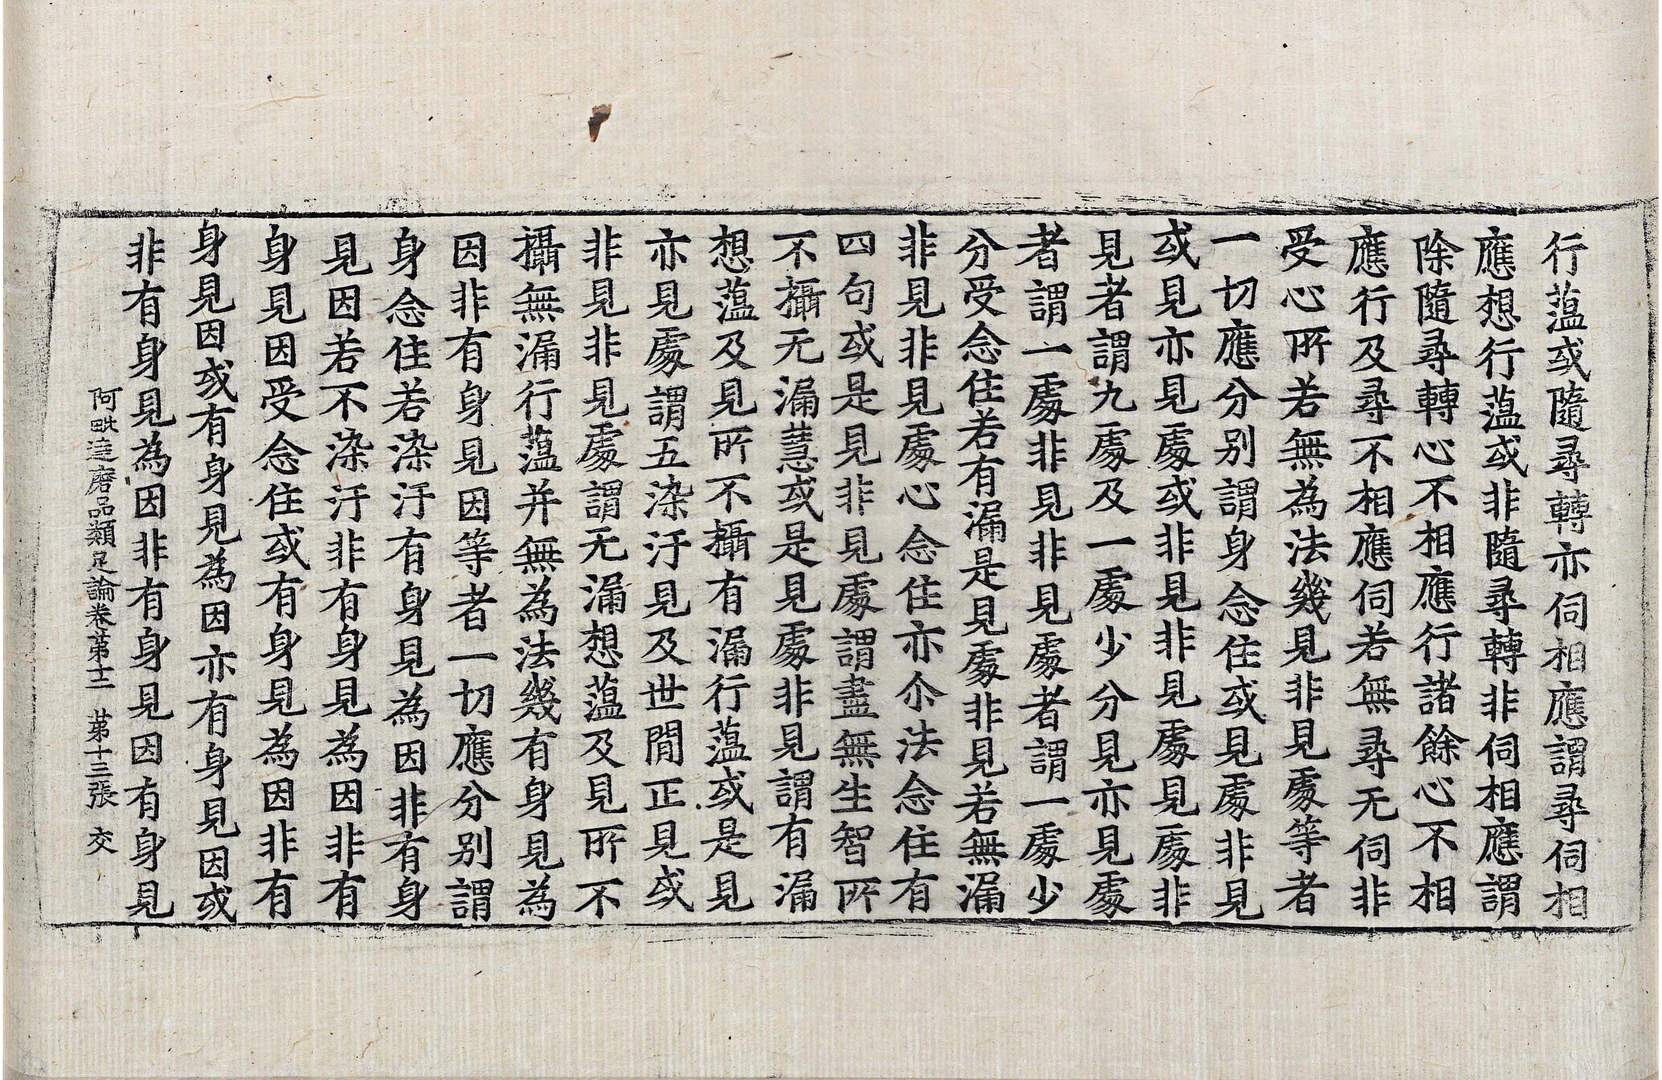 行蕴或隨尋轉亦伺相應謂尋伺相
應想行蕴或非隨尋轉非伺相應謂
除隨尋轉心不相應行諸餘心不相
應行及尋不相應伺若無尋无伺非
受心所若無為法幾見非見處等者
一切應分别謂身念住或見處非見
或見亦見處或非見非見處見處非
見者謂九處及一處少分見亦見處
者謂一處非見非見處者謂一處少
分受念住若有漏是見處非見若無漏
非見非見處心念住亦尒法念住有
四句或是見非見處謂盡無生智所
不攝无漏慧或是見處非見謂有漏
想蕴及見所不攝有漏行蕴或是見
亦見處謂五染汙見及世間正見或
非見非見處謂无漏想蕴及見所不
攝無漏行蕴并無為法幾有身見為
因非有身見因等者一切應分别謂
身念住若染汙有身見為因非有身
見因若不染汙非有身見為因非有
身見因受念住或有身見為因非有
身見因或有身見為因亦有身見因或
非有身見為因非有身見因有身見
阿毗達磨品類足論卷苐十二 苐十三張 交